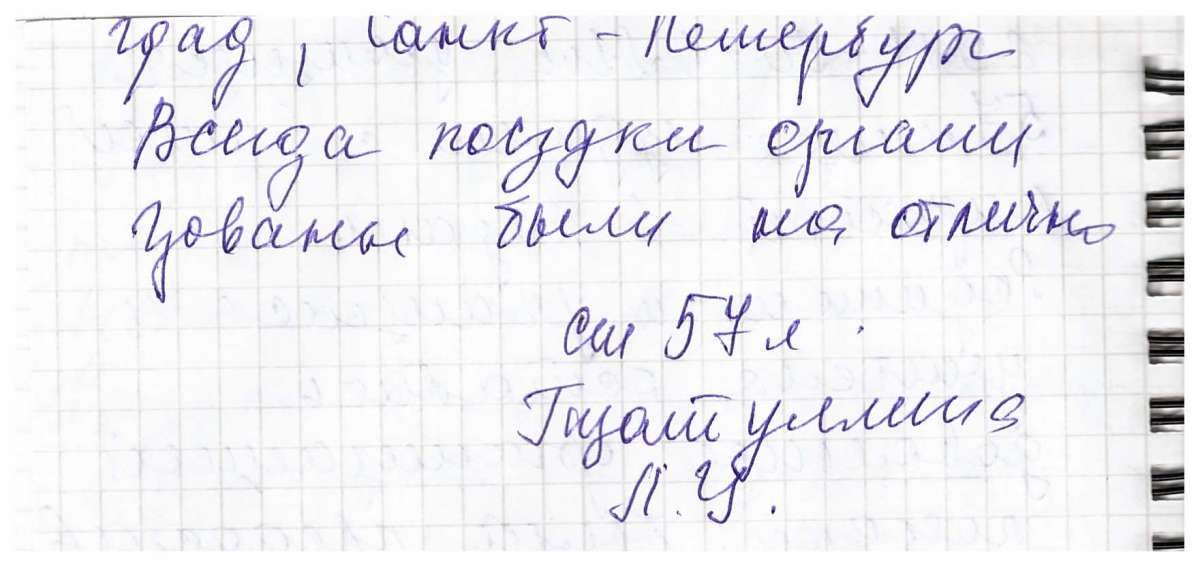 град, Санкт-Петербург
Всегда поездки органи
зованы были на отлично
ст 57 л.
Гизатуллина
Л. Ц.